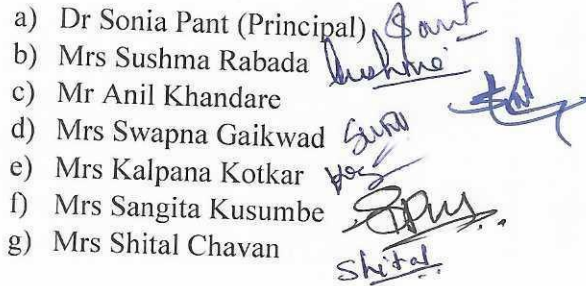 a) Dr Sonia Pant (Principal) Pant
b) Mrs Sushma Rabada Sushma
c) Mr Anil Khandare
d) Mrs Swapna Gaikwad
e) Mrs Kalpana Kotkar
f) Mrs Sangita Kusumbe
g) Mrs Shital Chavan
Shital